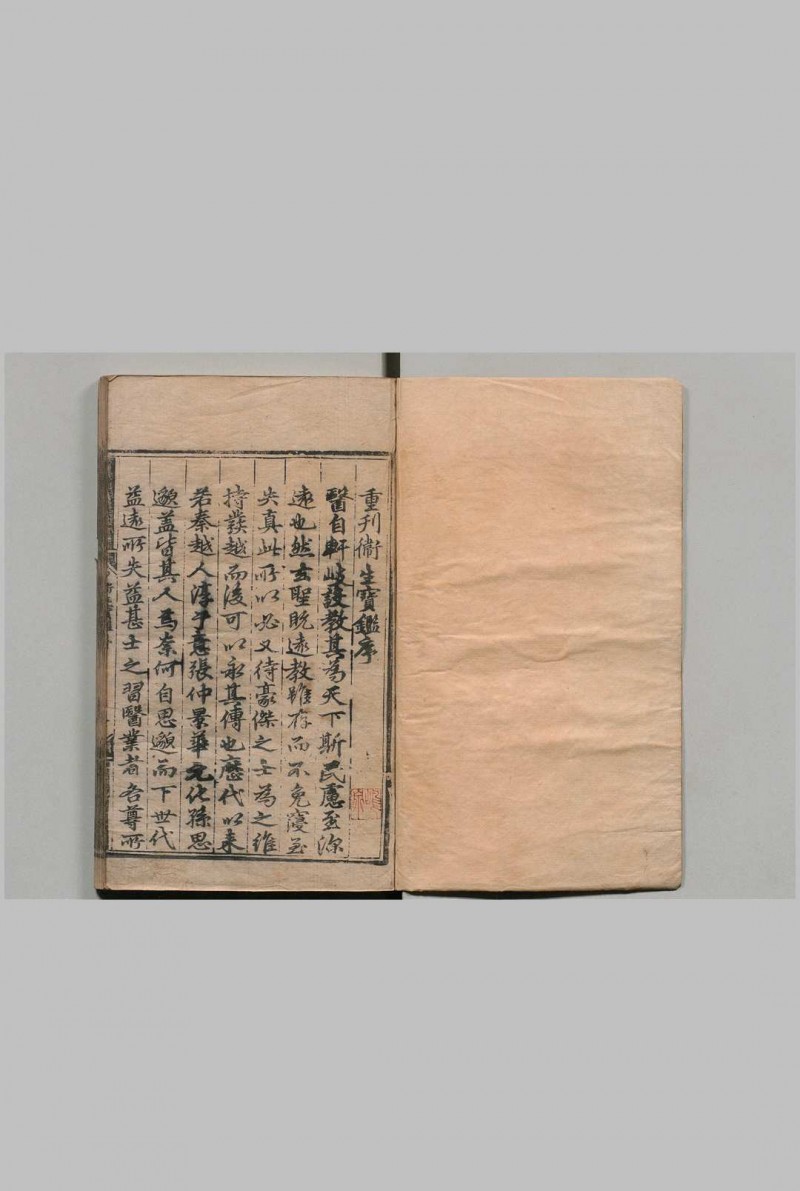 重刊衛生寶鑑序
醫自軒岐設教其為天下斯民慮至深
遠也然玄聖既遠教雖存而不免寖至
失真此所以必又待豪傑之士為之維
持發越而後可以永其傳也歷代以来
若秦越人淳于意張仲景華元化孫思
邈盖皆其人焉奈何自思邈而下世代
益遠所失益甚士之習醫業者各尊所